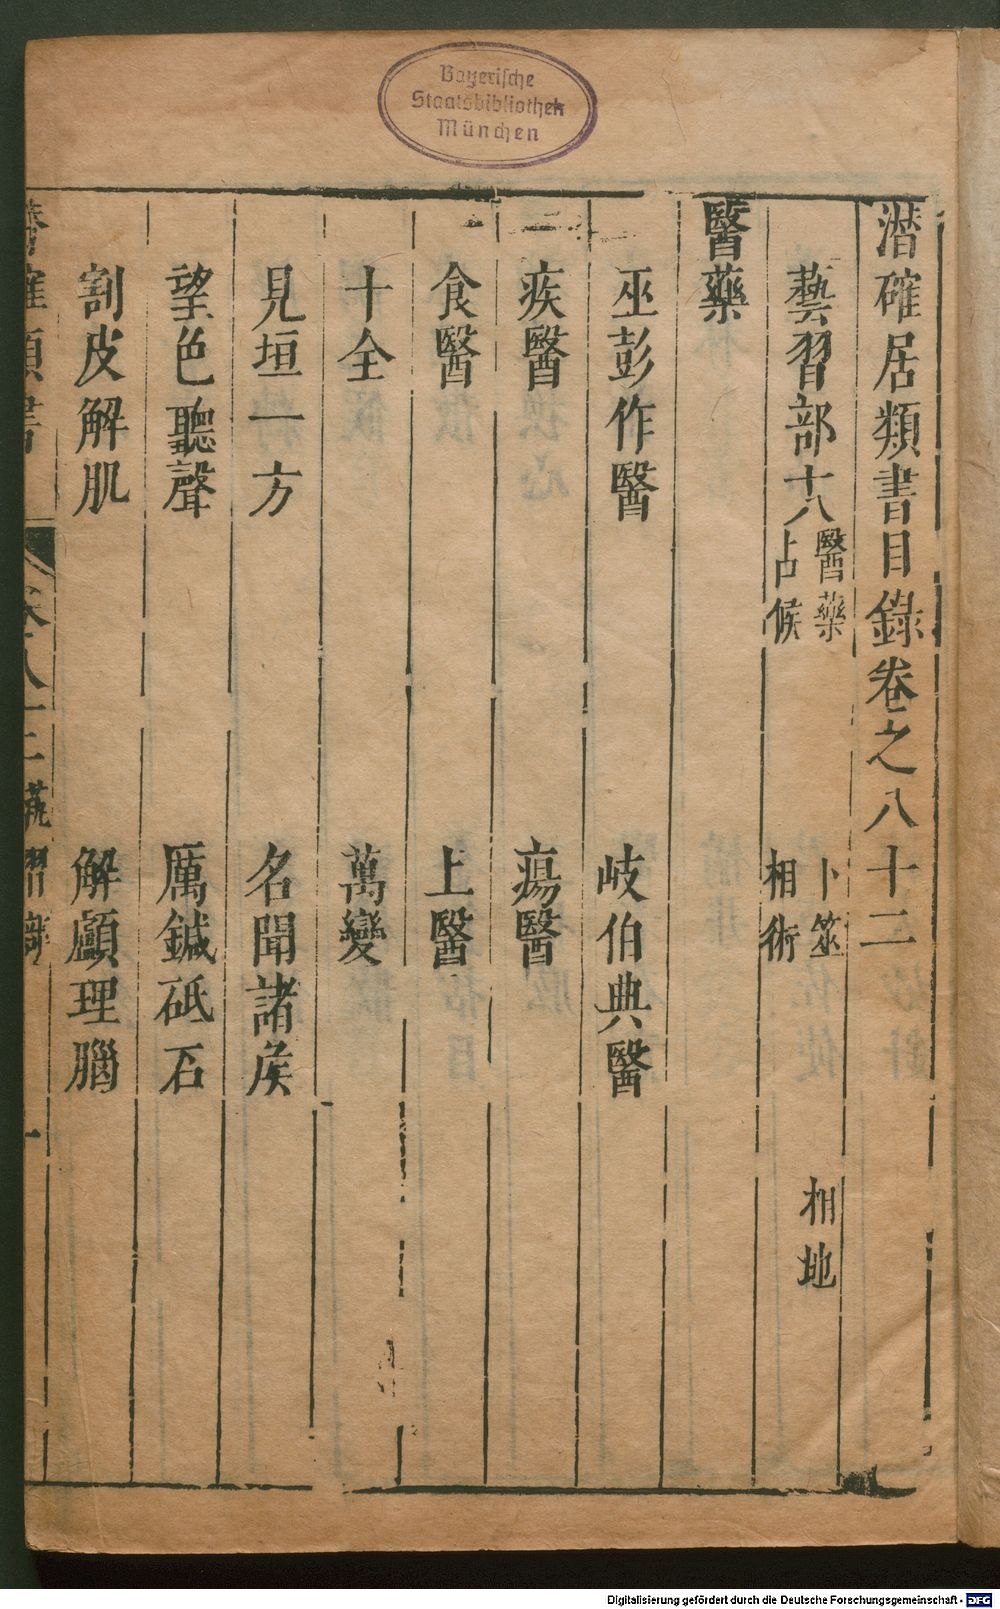 Bayerische
Staatsbibliothek
München
潛確居類書目錄卷之八十二
藝習部十八
醫藥 卜筮 相地
占候 相術
醫藥
巫彭作醫 岐伯典醫
疾醫 瘍醫
食醫 上醫
十全 萬變
見垣一方 名聞諸侯
望色聽聲 厲鍼砥石
割皮解肌 解顱理腦
潛確類書 卷八十二 藝習 一
Digitalisierung gefördert durch die Deutsche Forschungsgemeinschaft - DFG